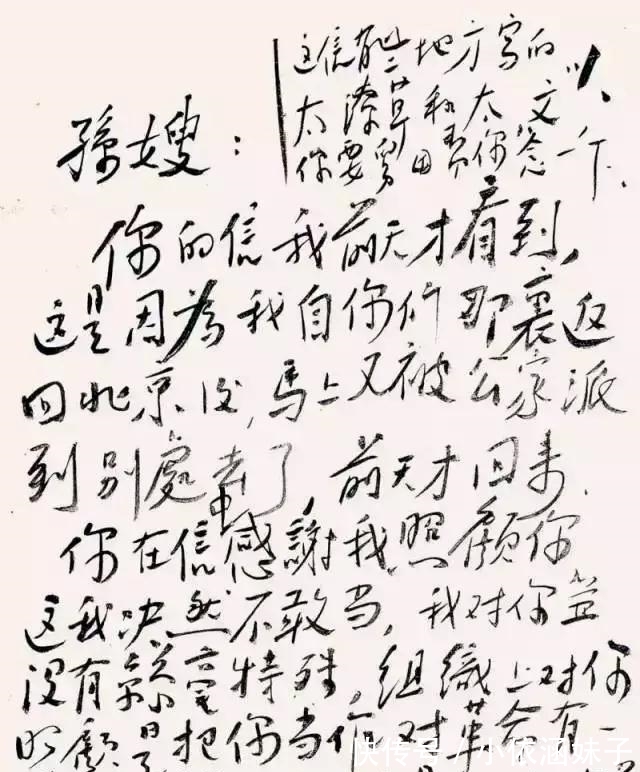 这信有些地方写的
太潦草和太文
你要 你念一下．
孫嫂：
你的信我前天才看到，
这是因為我自你们那裏返
回北京后，馬上又被公家派
到别處去了，前天才回来．
你在信中感謝我照顧你
这我决然不敢当，我对你並
没有 特殊，組織上对你
照顧是把你当作对革命有一
快传号 / 小依涵妹子